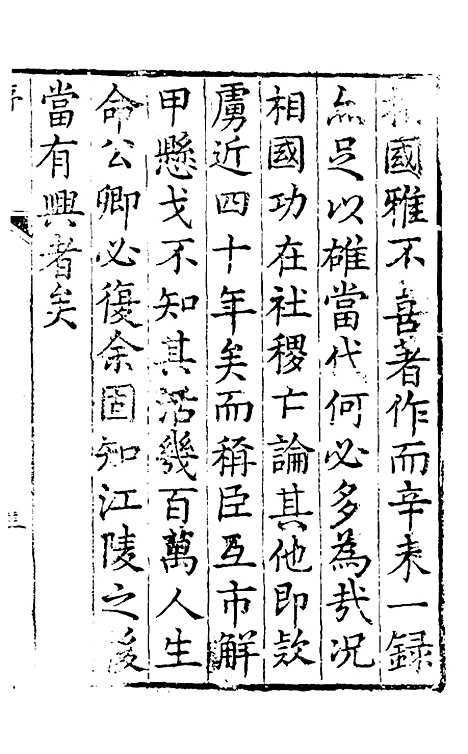 相國雅不喜著作而辛未一録
亦足以雄當代何必多為㢤況
相國功在社稷亡論其他即欵
虜近四十年矣而稱臣互市解
甲懸戈不知其活幾百萬人生
命公卿必復余固知江陵之後
當有興者矣
序
三